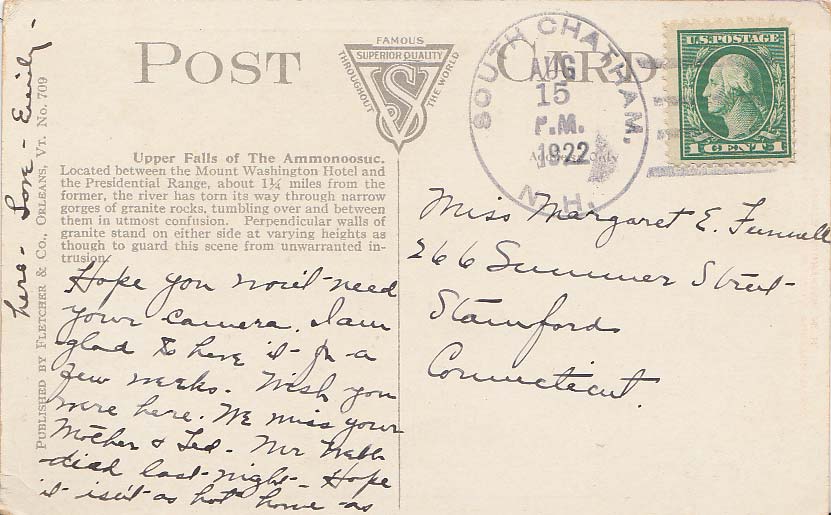 POST CARD
FAMOUS
SUPERIOR QUALITY
THROUGHOUT
THE WORLD
S
SOUTH CHATHAM,
N.H.
AUG
15
P.M.
1922
Address Only
U.S. POSTAGE
1 CENT 1
Upper Falls of The Ammonoosuc.
Located between the Mount Washington Hotel and
the Presidential Range, about 1¼ miles from the
former, the river has torn its way through narrow
gorges of granite rocks, tumbling over and between
them in utmost confusion. Perpendicular walls of
granite stand on either side at varying heights as
though to guard this scene from unwarranted in-
trusion.
Hope you won't need
your camera. I am
glad to have it for a
few weeks. Wish you
were here. We miss your
Mother & Ted. Mr Webb
died last night - Hope
it isn't as hot home as
here - Love - Emily -
Miss Margaret E. Funnell
266 Summer Street
Stamford
Connecticut.
PUBLISHED BY FLETCHER & CO., ORLEANS, VT. No. 709